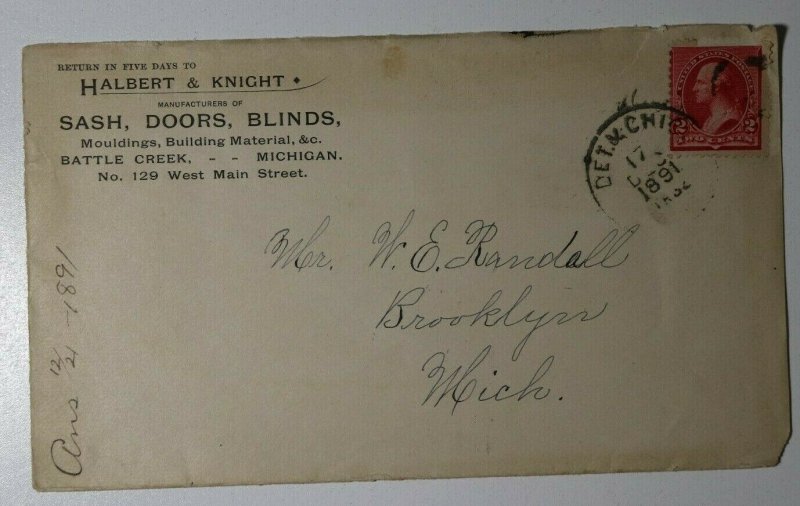 RETURN IN FIVE DAYS TO
HALBERT & KNIGHT
MANUFACTURERS OF
SASH, DOORS, BLINDS,
Mouldings, Building Material, &c.
BATTLE CREEK, - - MICHIGAN.
No. 129 West Main Street.
UNITED STATES POSTAGE
2 2
TWO CENTS
DET. & CHI
17
1891
Mr. W. E. Randall
Brooklyn
Mich.
Ans 12/21 - 1891